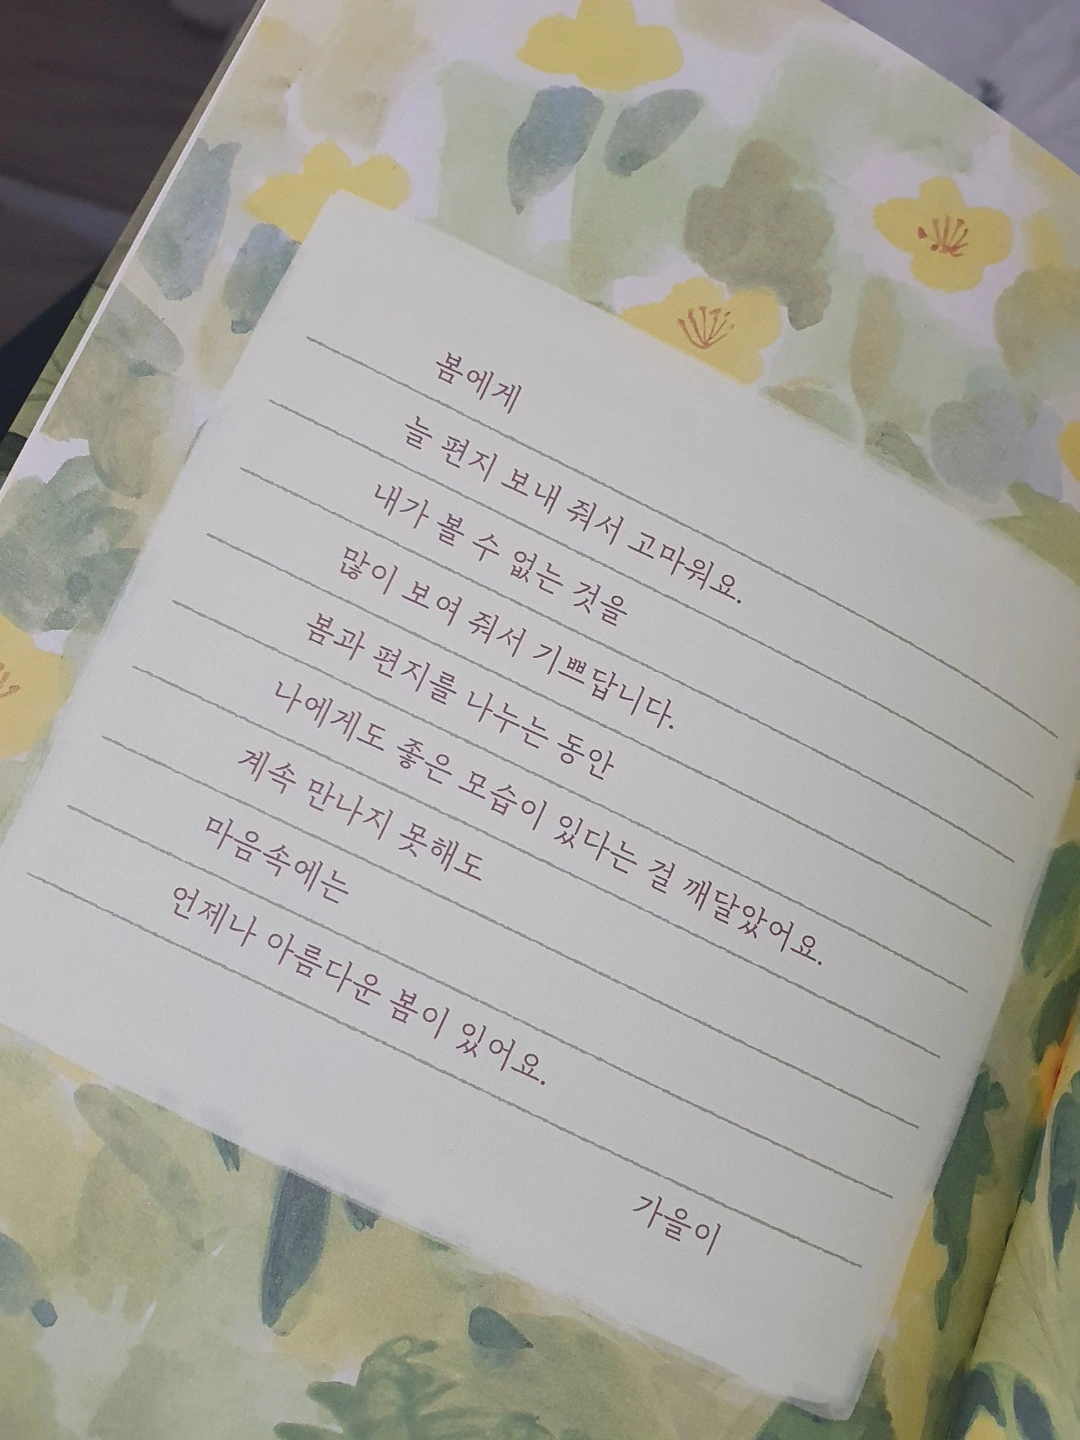 봄에게
늘 편지 보내 줘서 고마워요.
내가 볼 수 없는 것을
많이 보여 줘서 기쁘답니다.
봄과 편지를 나누는 동안
나에게도 좋은 모습이 있다는 걸 깨달았어요.
계속 만나지 못해도
마음속에는
언제나 아름다운 봄이 있어요.
가을이